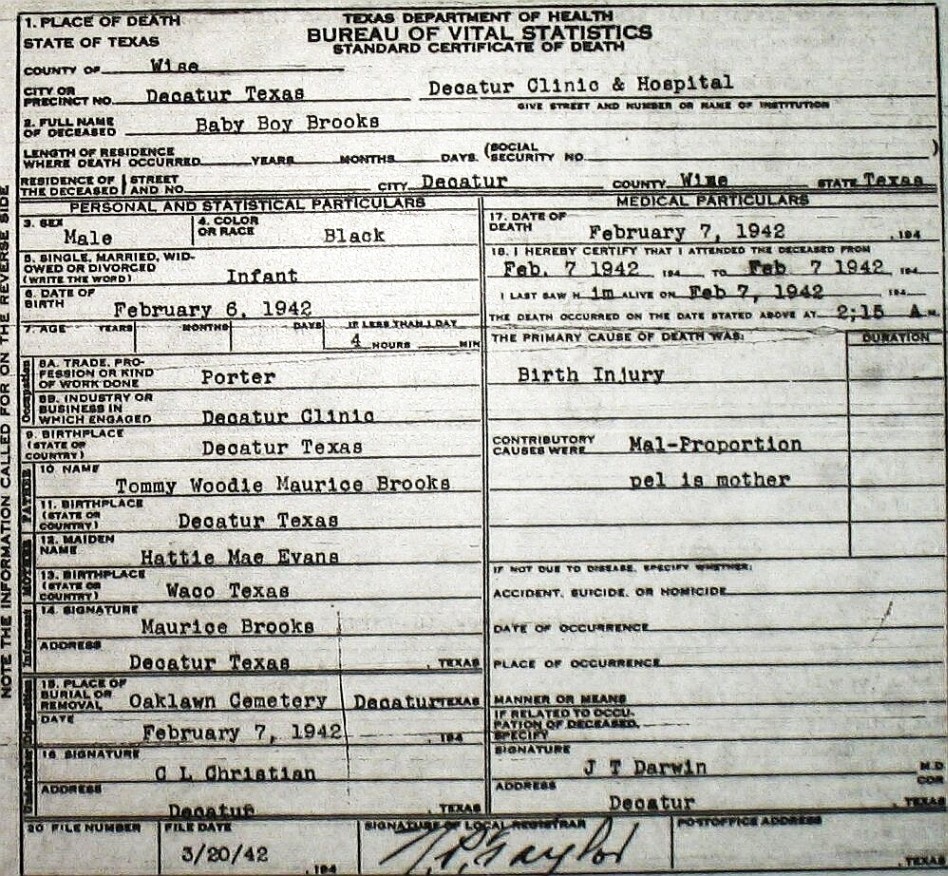 TEXAS DEPARTMENT OF HEALTH
BUREAU OF VITAL STATISTICS
STANDARD CERTIFICATE OF DEATH
1. PLACE OF DEATH
STATE OF TEXAS
COUNTY OF Wise
CITY OR PRECINCT NO. Decatur Texas Decatur Clinic & Hospital
GIVE STREET AND NUMBER OR NAME OF INSTITUTION
2. FULL NAME OF DECEASED Baby Boy Brooks
LENGTH OF RESIDENCE WHERE DEATH OCCURRED YEARS MONTHS DAYS. (SOCIAL SECURITY NO. )
RESIDENCE OF THE DECEASED STREET AND NO. CITY Decatur COUNTY Wise STATE Texas
NOTE THE INFORMATION CALLED FOR ON THE REVERSE SIDE
PERSONAL AND STATISTICAL PARTICULARS
3. SEX Male 4. COLOR OR RACE Black
5. SINGLE, MARRIED, WIDOWED OR DIVORCED (WRITE THE WORD) Infant
6. DATE OF BIRTH February 6, 1942
7. AGE YEARS MONTHS DAYS IF LESS THAN 1 DAY 4 HOURS MIN
Occupation
8A. TRADE, PROFESSION OR KIND OF WORK DONE Porter
8B. INDUSTRY OR BUSINESS IN WHICH ENGAGED Decatur Clinic
9. BIRTHPLACE (STATE OR COUNTRY) Decatur Texas
FATHER
10. NAME Tommy Woodie Maurice Brooks
11. BIRTHPLACE (STATE OR COUNTRY) Decatur Texas
MOTHER
12. MAIDEN NAME Hattie Mae Evans
13. BIRTHPLACE (STATE OR COUNTRY) Waco Texas
Informant
14. SIGNATURE Maurice Brooks
ADDRESS Decatur Texas , TEXAS
Disposition
15. PLACE OF BURIAL OR REMOVAL Oaklawn Cemetery Decatur TEXAS
DATE February 7, 1942 , 194
Undertaker
16. SIGNATURE C L Christian
ADDRESS Decatur , TEXAS
MEDICAL PARTICULARS
17. DATE OF DEATH February 7, 1942 , 194
18. I HEREBY CERTIFY THAT I ATTENDED THE DECEASED FROM
Feb. 7 1942 , 194 TO Feb 7 1942 , 194
I LAST SAW H im ALIVE ON Feb 7, 1942 , 194
THE DEATH OCCURRED ON THE DATE STATED ABOVE AT 2;15 A M.
THE PRIMARY CAUSE OF DEATH WAS: DURATION
Birth Injury
CONTRIBUTORY CAUSES WERE Mal-Proportion
pel is mother
IF NOT DUE TO DISEASE, SPECIFY WHETHER:
ACCIDENT, SUICIDE, OR HOMICIDE
DATE OF OCCURRENCE
PLACE OF OCCURRENCE
MANNER OR MEANS
IF RELATED TO OCCUPATION OF DECEASED, SPECIFY
SIGNATURE J T Darwin M.D.
ADDRESS Decatur , TEXAS
20 FILE NUMBER FILE DATE 3/20/42 , 194 SIGNATURE OF LOCAL REGISTRAR POSTOFFICE ADDRESS , TEXAS